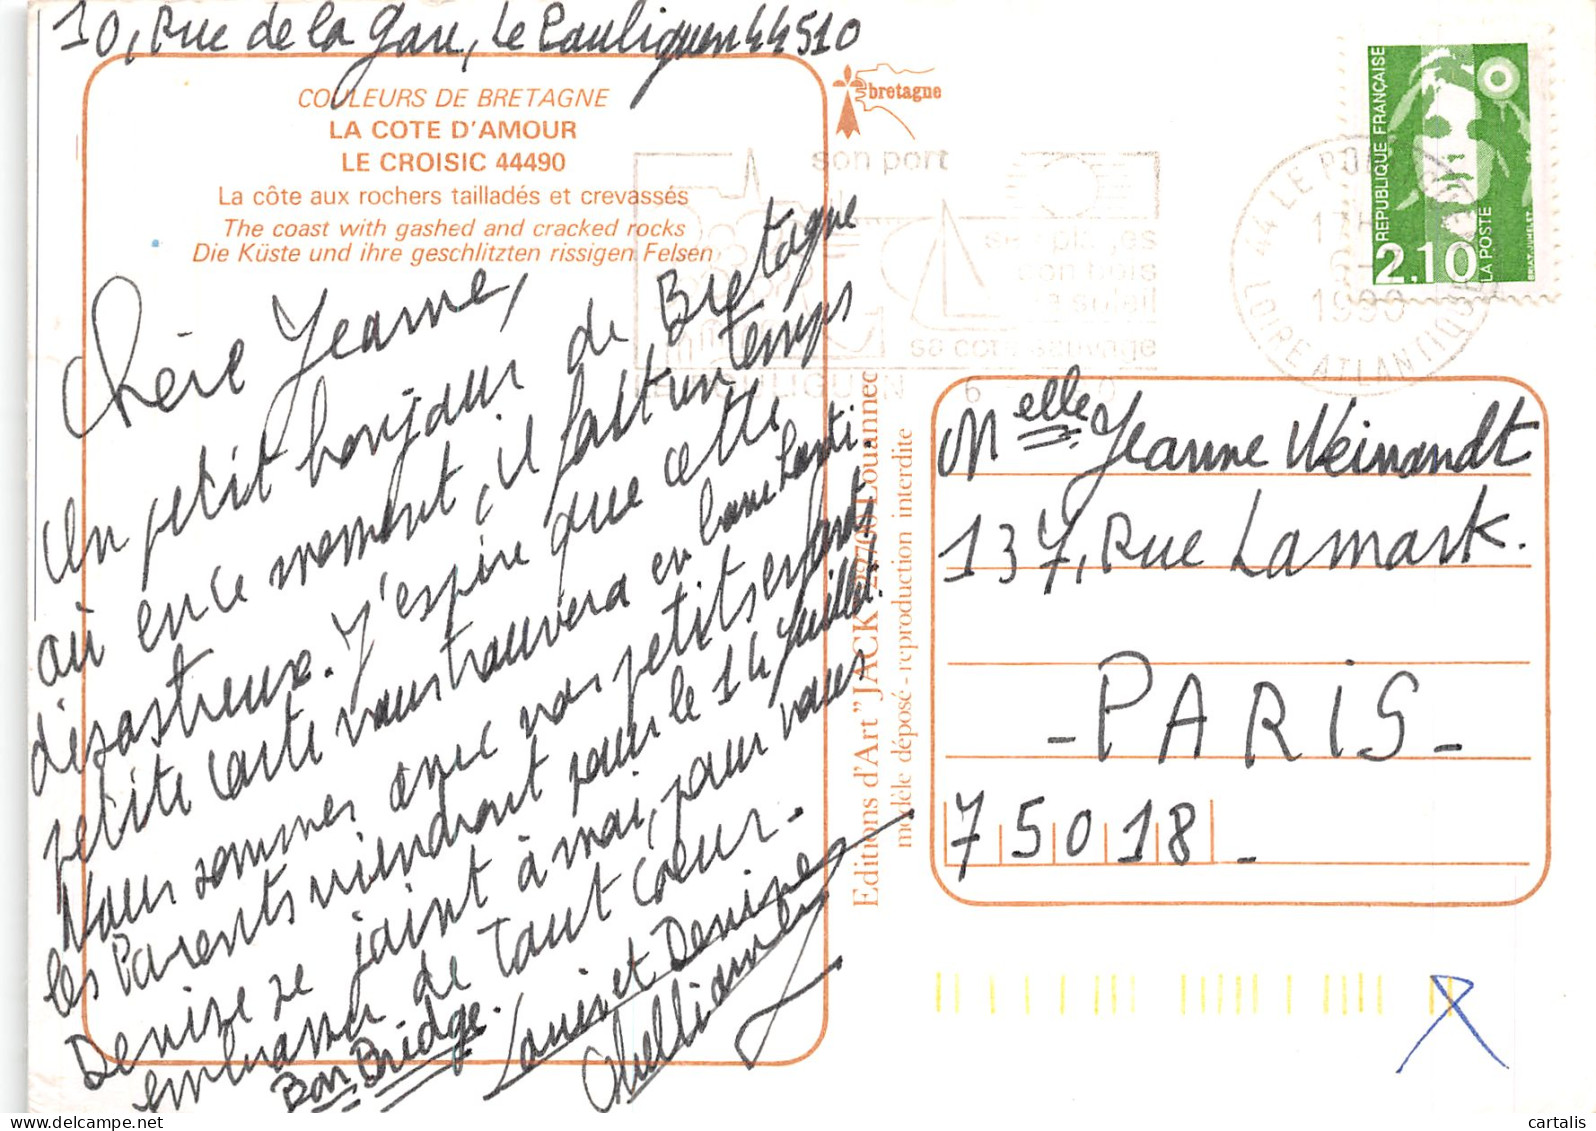 10, Rue de la Gare, Le Pouliguen 44510
COULEURS DE BRETAGNE
LA COTE D'AMOUR
LE CROISIC 44490
La côte aux rochers tailladés et crevassés
The coast with gashed and cracked rocks
Die Küste und ihre geschlitzten rissigen Felsen
Chère Jeanne,
Un petit bonjour de Bretagne
où en ce moment, il fait un temps
désastreux. J'espère que cette
petite carte vous trouvera en bonne santé.
Nous sommes avec nos petits enfants
les Parents viendront pour le 14 Juillet.
Denise se joint à moi, pour vous
embrasser de tout coeur.
Bon Bridge. Louis et Denise
bretagne
son port
ses plages
son bois
soleil
sa cote sauvage
LE POULIGUEN 6
44 LE POULIGUEN
17H
6-
1990
LOIRE ATLANTIQUE
REPUBLIQUE FRANÇAISE
2,10
LA POSTE
BRIAT-JUMELET
Editions d'Art "JACK" 29700 Louannec
modèle déposé - reproduction interdite
Melle Jeanne Weinandt
137, Rue Lamark.
- PARIS -
75018 -
cartalis